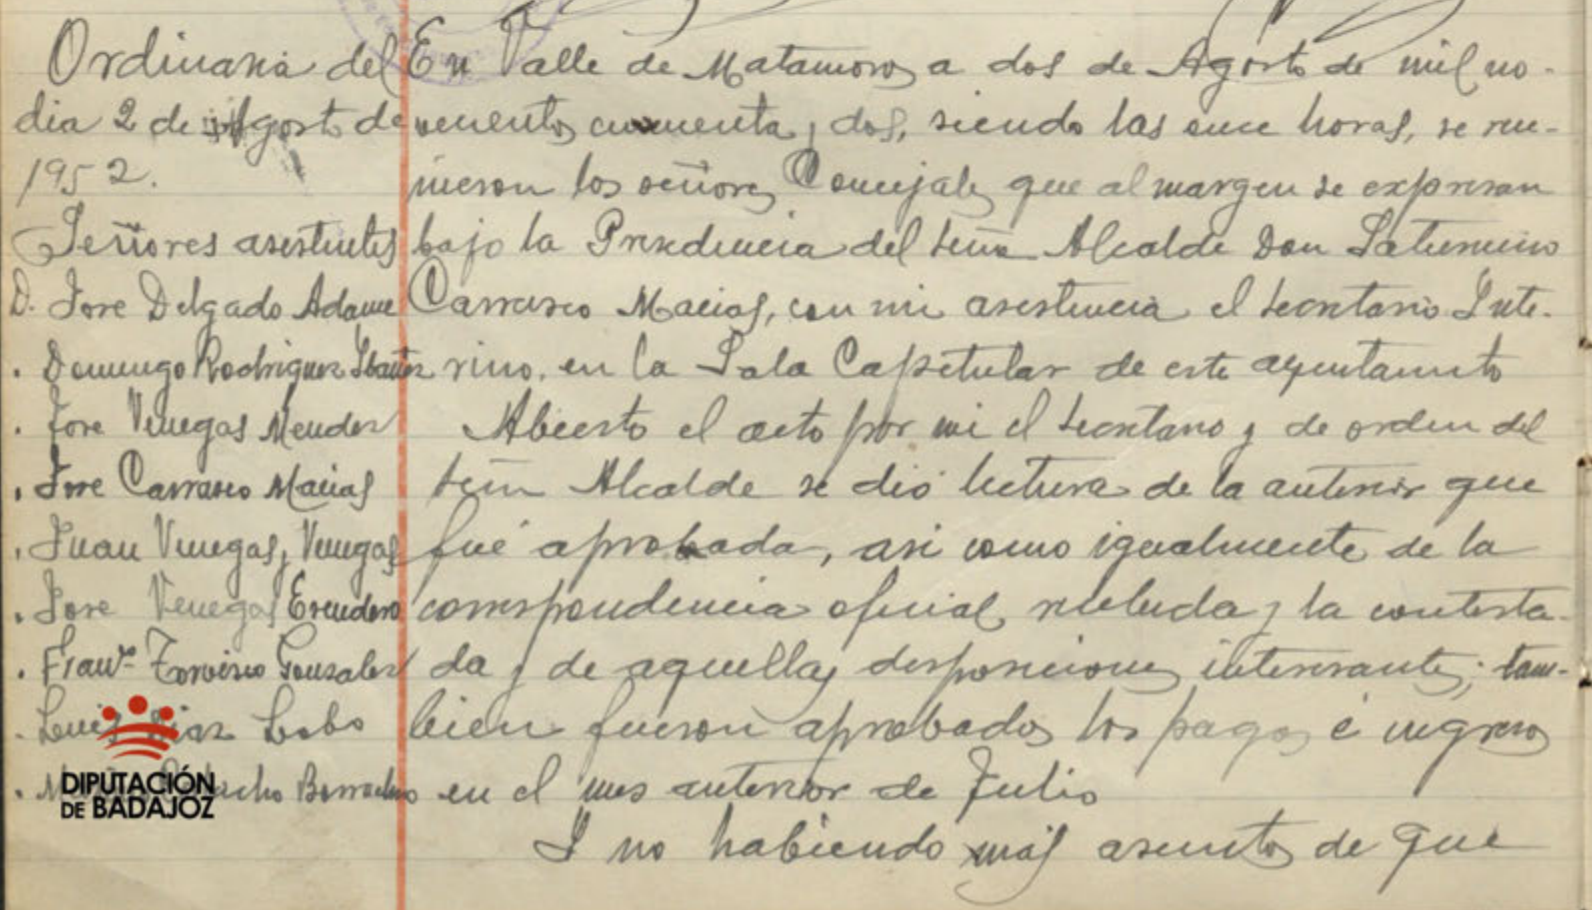 Ordinaria del
dia 2 de Agosto de
1952.
Señores asistentes
D. Jose Delgado Adame
. Domingo Rodriguez Ibañez
. Jose Venegas Mendez
. Jose Carrasco Macias
. Juan Venegas y Venegas
. Jose Venegas Escudero
. Franco Torvisco Gonzalez
. Luis Diaz Lobo
En Valle de Matamoros a dos de Agosto de mil no-
vecientos cincuenta y dos, siendo las once horas, se reu-
nieron los señores Concejales que al margen se expresan
bajo la Presidencia del señor Alcalde Don Saturnino
Carrasco Macias, con mi asistencia el Secretario Inte-
rino, en la Sala Capitular de este ayuntamiento
Abierto el acto por mi el Secretario y de orden del
señor Alcalde se dió lectura de la anterior que
fué aprobada, asi como igualmente de la
correspondencia oficial recibida y la contesta-
da y de aquellas disposiciones interesantes; tam-
bien fueron aprobados los pagos é ingresos
en el mes anterior de Julio
Y no habiendo más asuntos de que
DIPUTACIÓN
DE BADAJOZ